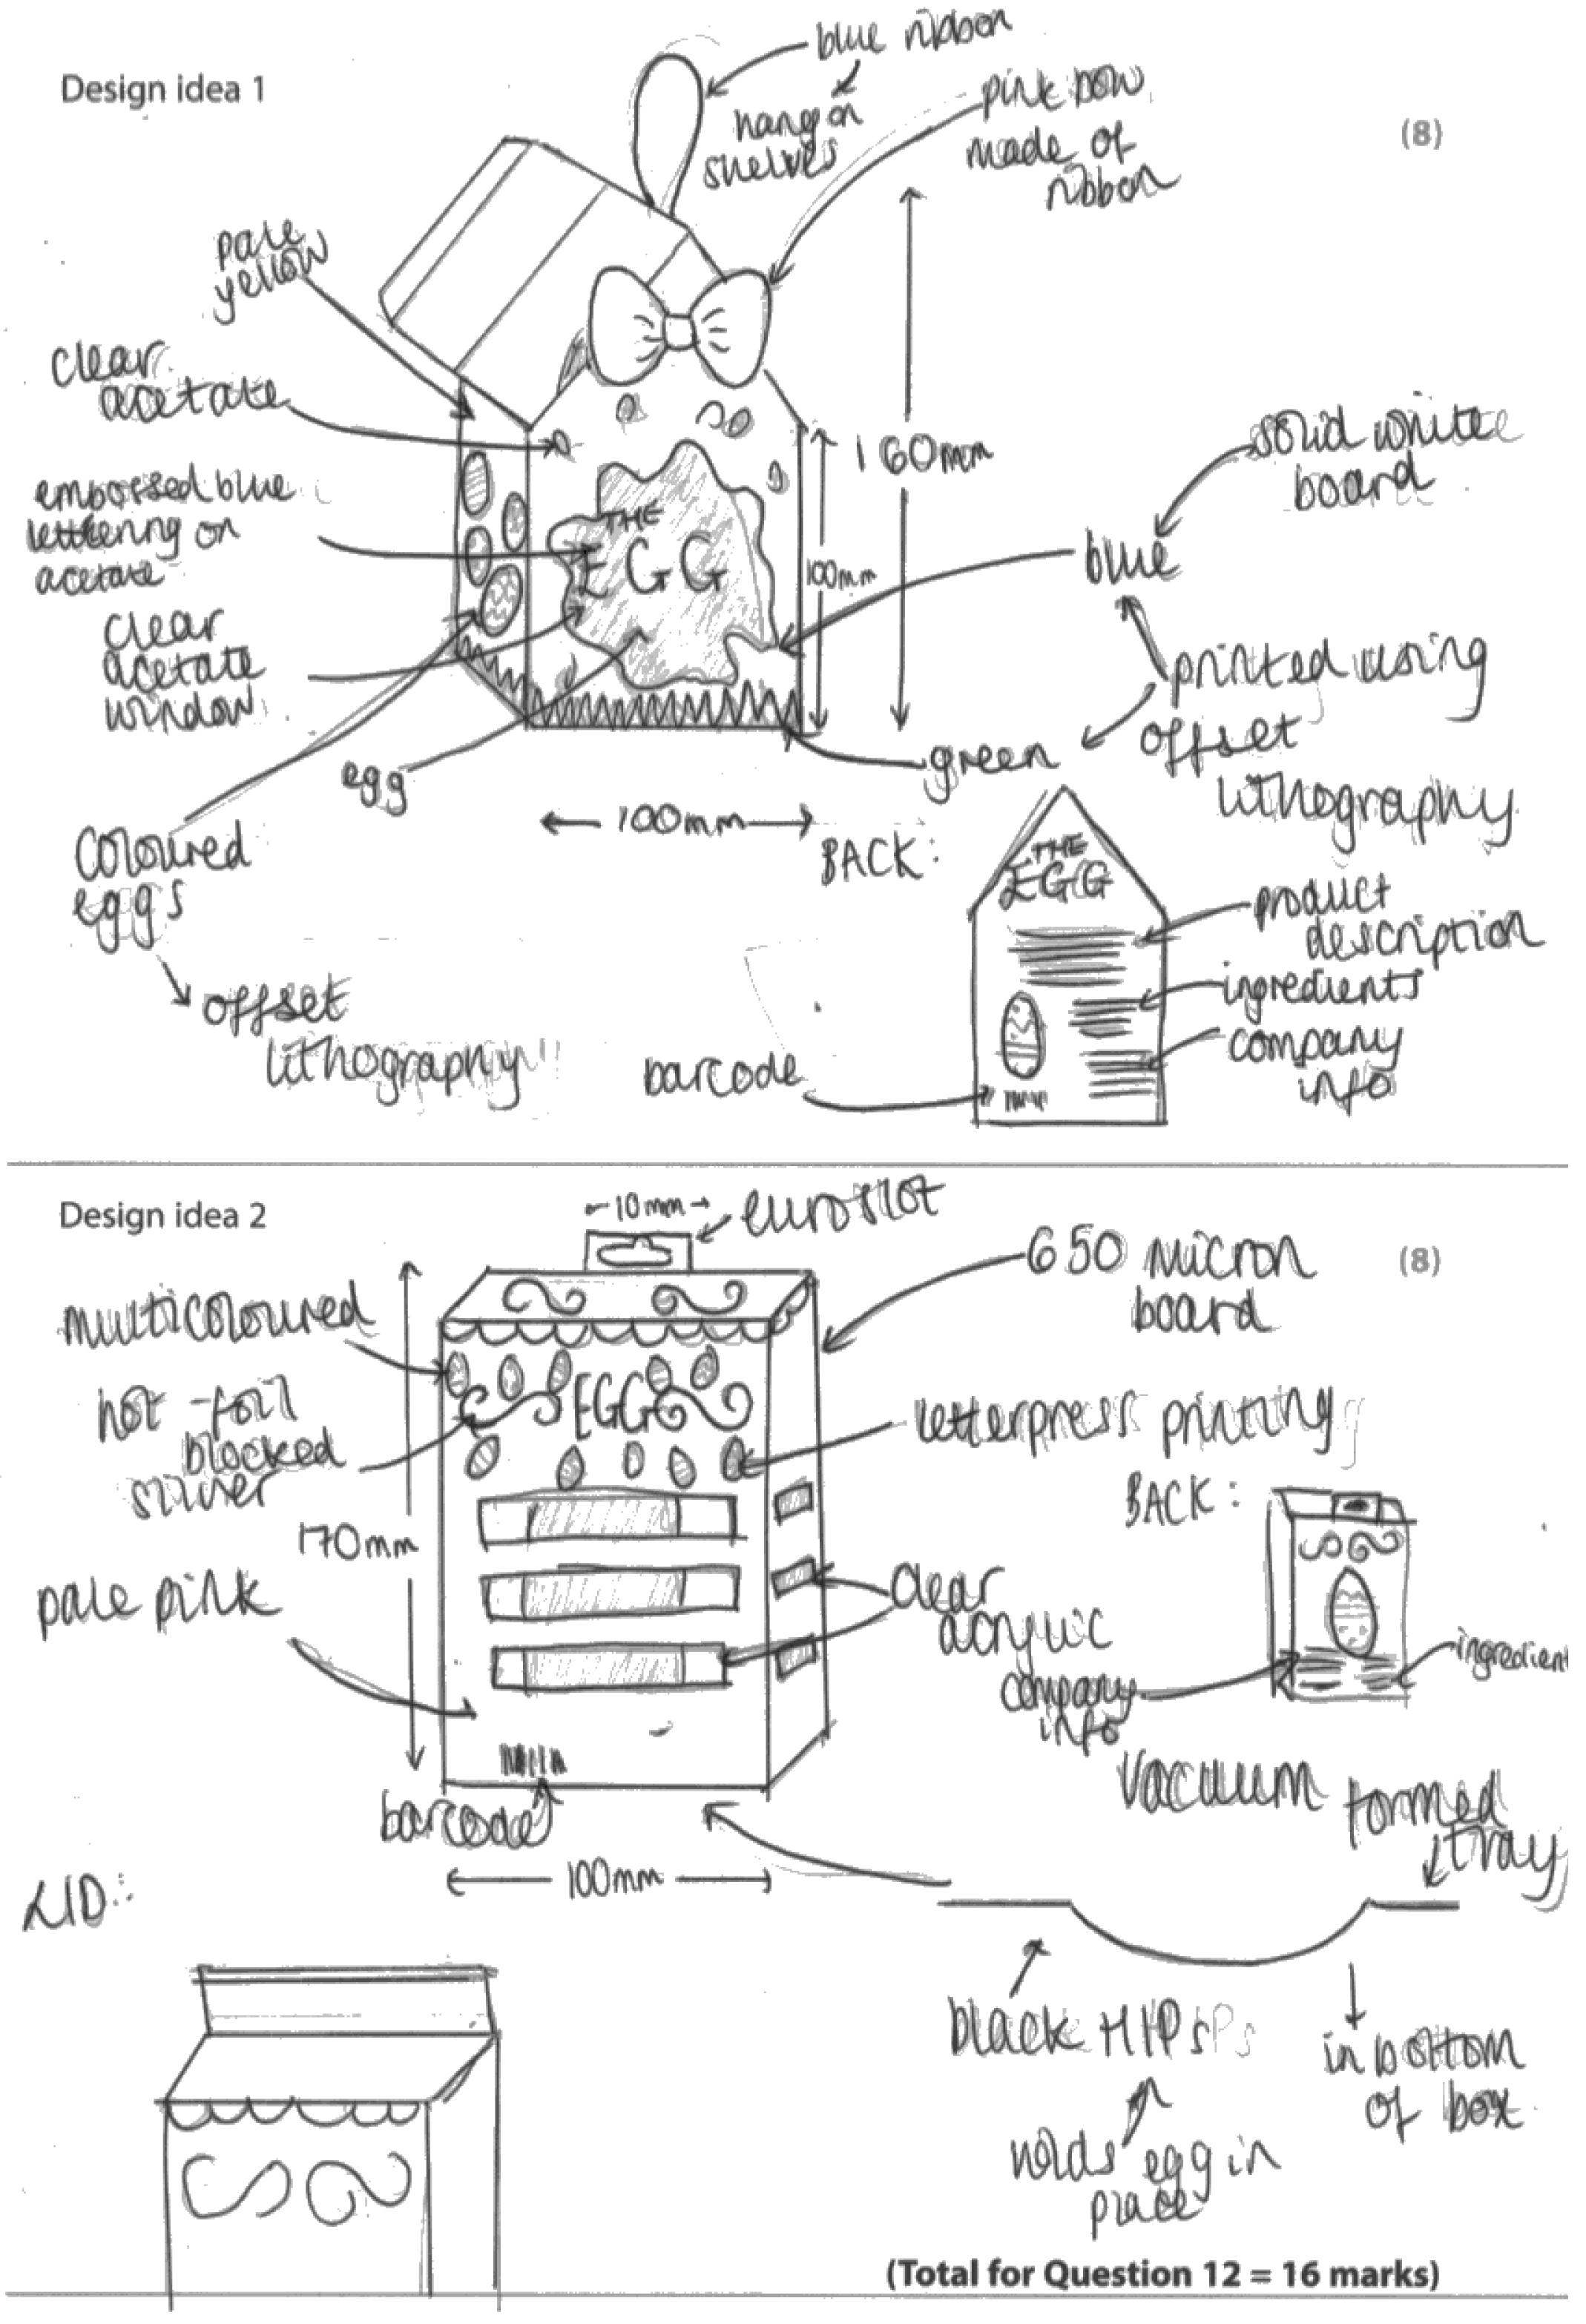 Design idea 1
(8)
blue ribbon
hang on
shelves
pink bow
made of
ribbon
pale
yellow
clear
acetate
embossed blue
lettering on
acetate
clear
acetate
window
egg
coloured
eggs
offset
lithography
THE
EGG
160mm
100mm
100mm
solid white
board
blue
printed using
offset
lithography
green
BACK:
THE
EGG
product
description
ingredients
company
info
barcode
Design idea 2
(8)
10mm
euroslot
650 micron
board
multicoloured
hot-foil
blocked
silver
EGG
letterpress printing
170mm
pale pink
clear
acrylic
barcode
100mm
BACK:
company
info
ingredient
vacuum formed
tray
black HIPs
holds egg in
place
in bottom
of box
LID:
(Total for Question 12 = 16 marks)